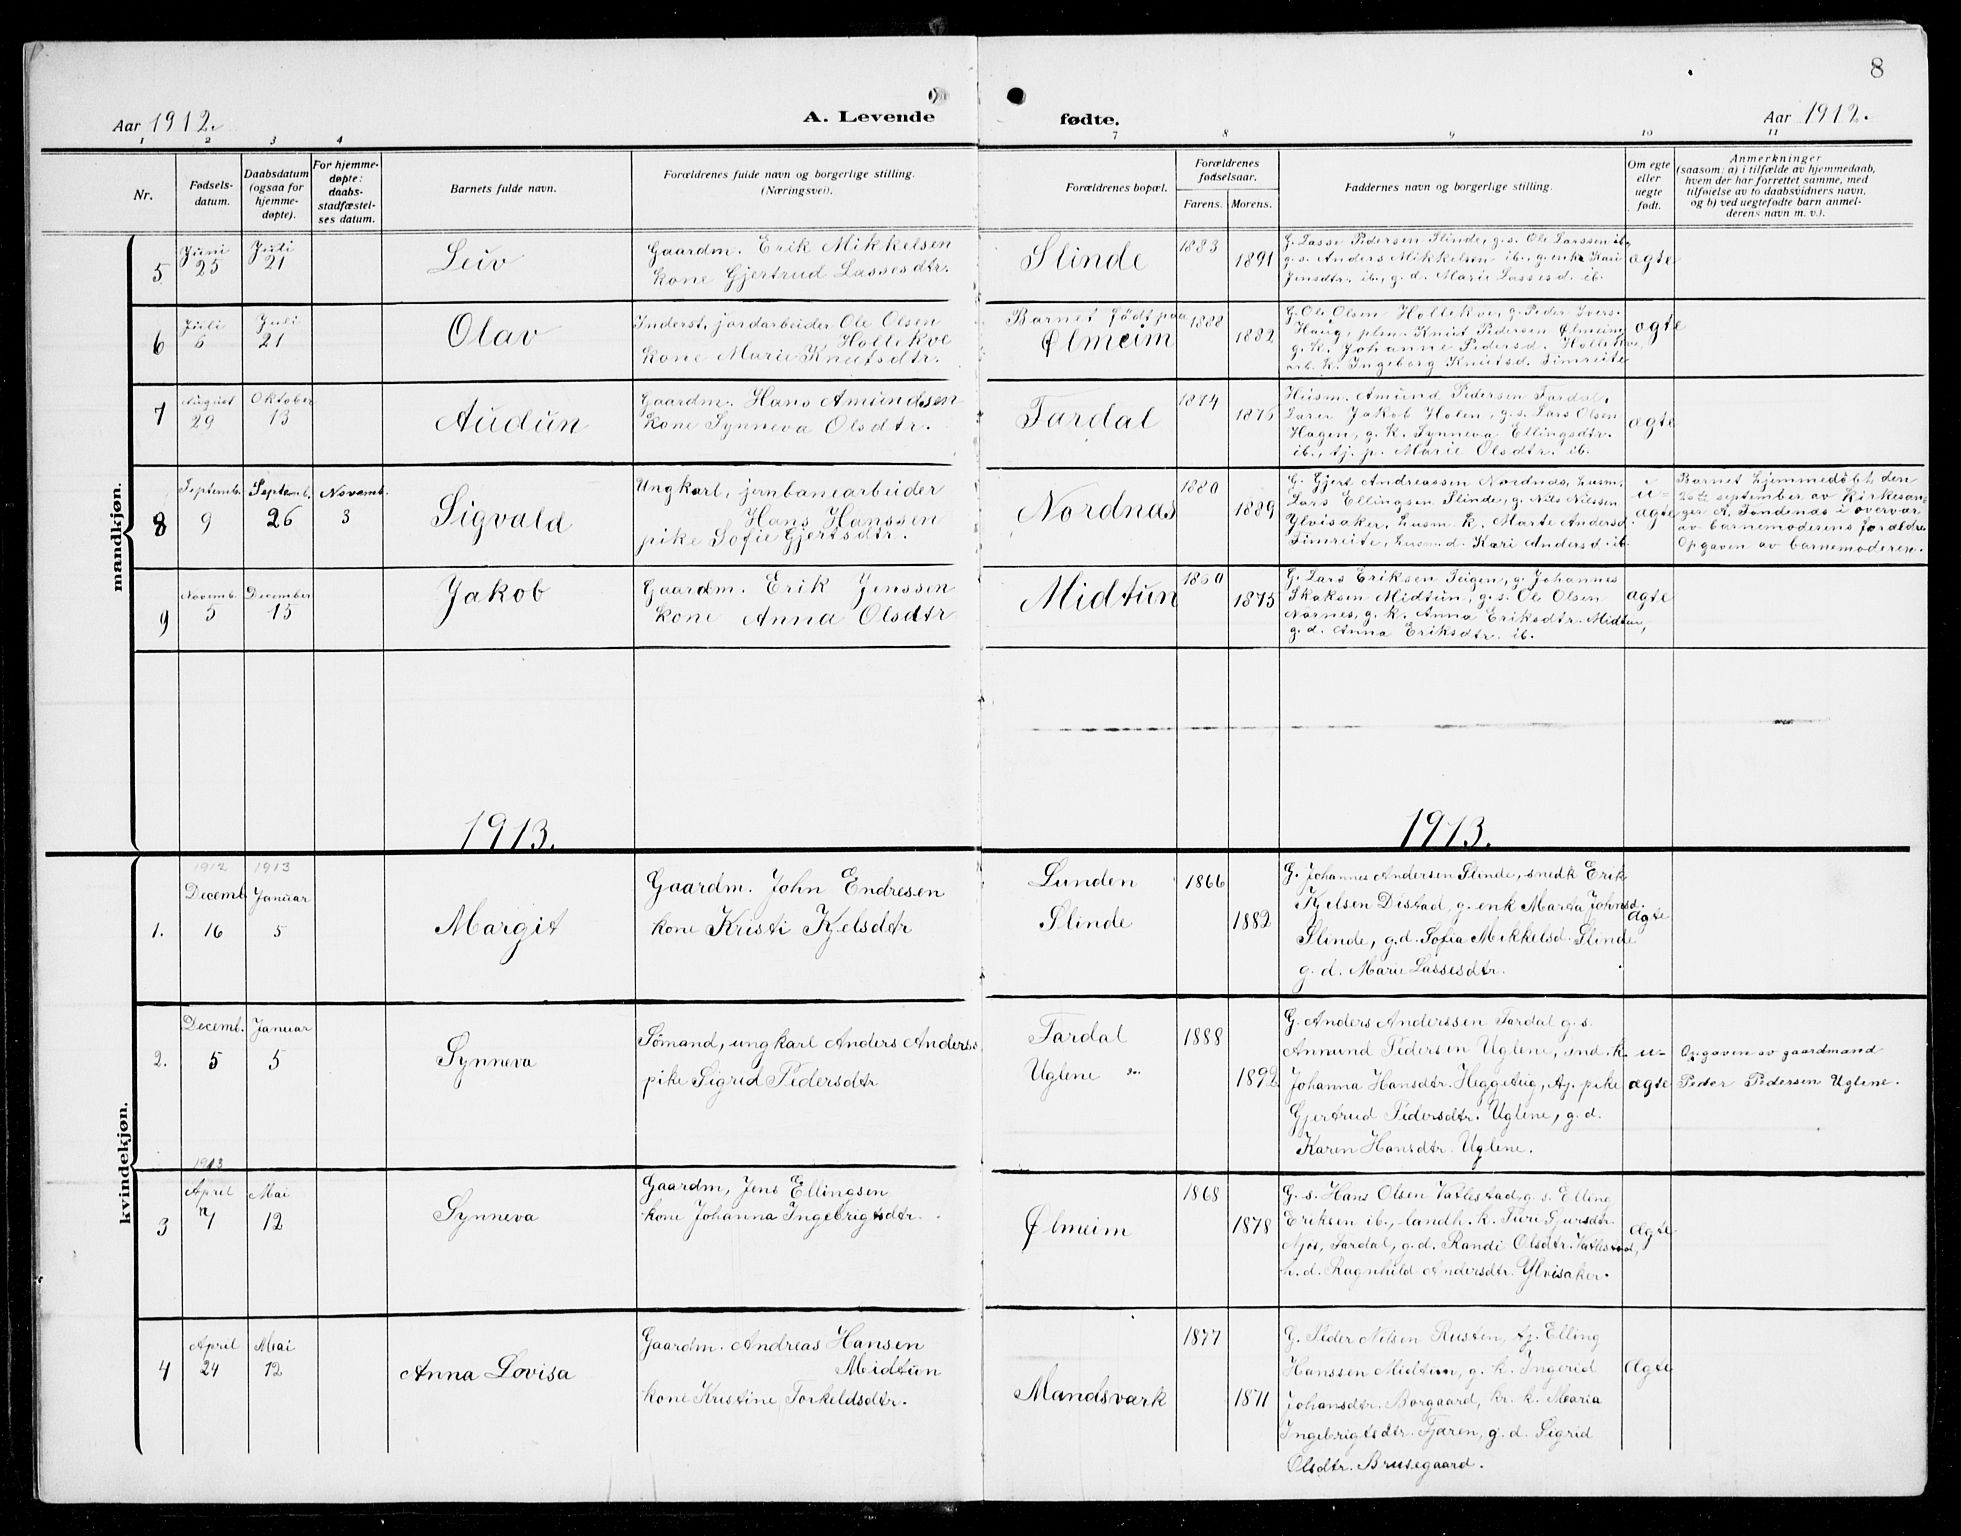 8
Aar 1912.
A. Levende
fødte.
Aar 1912.
1 2 3 4
7 8 9 10 11
Nr.
Fødsels-
datum.
Daabsdatum
(ogsaa for
hjemme-
døpte).
For hjemme-
døpte:
daabs-
stadfæstel-
ses datum.
Barnets fulde navn.
Forældrenes fulde navn og borgerlige stilling.
(Næringsvei).
Forældrenes bopæl.
Forældrenes
fødselsaar.
Farens. Morens.
Faddernes navn og borgerlige stilling.
Om egte
eller
uegte
født.
Anmerkninger
(saasom: a) i tilfælde av hjemmedaab,
hvem der har forrettet samme, med
tilføielse av to daabsvidners navn,
og b) ved uegtefødte barn anmel-
derens navn m. v.).
mandkjøn.
5
Juni
25
Juli
21
Leiv
Gaardm. Erik Mikkelsen
kone Gjertrud Lassesdtr.
Slinde
1883
1891
G. Lasse Pedersen Slinde, g.s. Ole Larssen ib.,
g.s. Anders Mikkelsen ib., g. enke Kari
Jensdtr. ib., g.d. Marie Lassesd. ib.
ægte
6
Juli
6
Juli
21
Olav
Inderst, jordarbeider Ole Olsen
Hollekve
kone Marie Knutsdtr.
Barnet født paa
Ølmeim
1888
1882
G. Ole Olsen Hollekve, g. Peder Ivers.
Haug, plm. Knut Pedersen Ølmeim,
g. k. Johanne Pedersd. Hollekve,
arb. k. Ingeborg Knutsd. Timreite
ægte
7
August
29
Oktober
13
Audun
Gaardm. Hans Amundsen
kone Synneva Olsdtr.
Fardal
1874
1876
Husm. Amund Pedersen Fardal,
Lærer Jakob Holen, g.s. Lars Olsen
Hagen, g. k. Synneva Ellingsdtr.
ib., tj. p. Marie Olsdtr. ib.
ægte
8
Septemb.
9
Septemb.
26
Novemb.
3
Sigvald
Ungkarl, jernbanearbeider
Hans Hanssen
pike Sofie Gjertsdtr.
Nordnas
1880
1889
G. Gjert Andreassen Nordnas, husm.
Lars Ellingsen Slinde, g. Nils Nilssen
Ylvisaker, husm. k. Marte Andersd.
Timreite, husm. d. Kari Andersd. ib.
u-
ægte
Barnet hjemmedøbt den
20de september av kirkesan-
ger A. Tondenes i overvær
av barnemoderens forældre
Opgaven av barnemoderen.
9
Novemb.
5
December
15
Jakob
Gaardm. Erik Jenssen
kone Anna Olsdtr
Midtun
1860
1875
G. Lars Eriksen Teigen, g. Johannes
Skaksen Midtun, g.s. Ole Olsen
Nornes, g. k. Anna Eriksdtr. Midtun,
g. d. Anna Eriksdtr. ib.
ægte
1913.
1913.
kvindekjøn.
1.
1912
Decemb.
16
1913
Januar
5
Margit
Gaardm. John Endresen
kone Kristi Kjelsdtr
Lunden
Slinde
1866
1882
G. Johannes Andersen Slinde, snedk Erik
Kjelsen Distad, g. enk Marta Johnsd.
Slinde, g.d. Sofia Mikkelsd. Slinde
g. d. Marie Lassesdtr.
ægte
2.
Decemb.
5
Januar
5
Synneva
Sømand, ungkarl Anders Anderss
pike Sigrid Pedersdtr
Fardal
Uglene
1888
1892
G. Anders Anderssen Fardal g.s.
Anmund Pedersen Uglene, snd. k.
Johanna Hansdtr. Heggetug, tj. pike
Gjertrud Pedersdtr. Uglene, g. d.
Karen Hansdtr. Uglene.
u-
ægte
Opgaven av gaardmand
Peder Pedersen Uglene.
3
1913
April
Mai
12
Synneva
Gaardm, Jens Ellingsen
kone Johanna Ingebrigtsdtr.
Ølmeim
1868
1878
G. s. Hans Olsen Vatlestad, g. s. Elling
Eriksen ib., landh. k. Turi Gjursdtr.
Njøs, Fardal, g.d. Randi Olsdtr. Vatlestad,
h. d. Ragnhild Andersdtr. Ylvisaker.
Ægte
4
April
24
Mai
12
Anna Lovisa
Gaardm. Andreas Hansen
Midtun
kone Kristine Torkeldsdtr.
Mandsvark
1877
1871
G. Peder Nilsen Rusten, tj. Elling
Hanssen Midtun, g. k. Ingerid
Johansdtr. Borgaard, kr. k. Maria
Ingebrigtsdtr. Fjæren, g. d. Sigrid
Olsdtr. Brusegaard.
Ægte